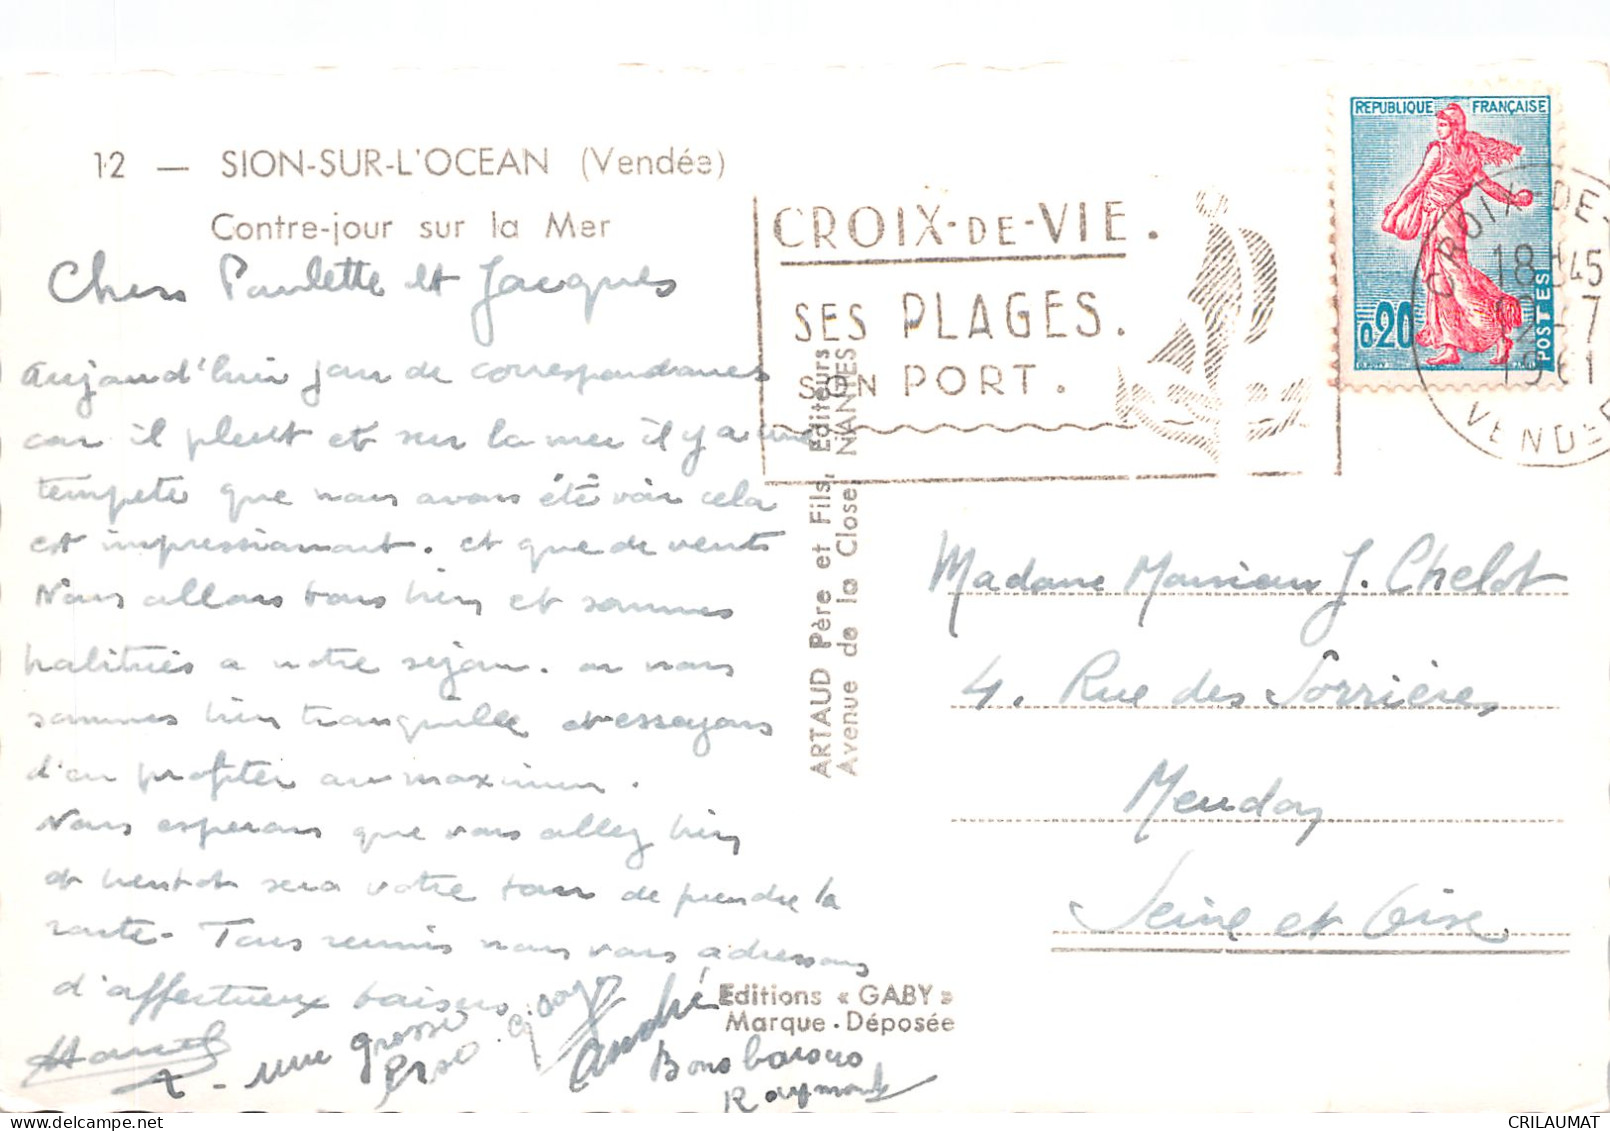 12 — SION-SUR-L'OCEAN (Vendée)
Contre-jour sur la Mer
Chers Paulette et Jacques
Aujourd'hui jour de correspondances
car il pleut et sur la mer il y a une
tempete que nous avons été voir cela
est impressionnant. et que de vents
Nous allons tous bien et sommes
habitués a notre sejour. on nous
sommes bien tranquille et esseyons
d'en profiter au maximum.
Nous esperons que vous allez bien
et bientot sera votre tour de prendre la
route. Tous reunis nous vous adressons
d'affectueux baisers.
Marcel
une grosse
bise.
André
Bons baisers
Raymonde
ARTAUD Père et Fils, Editeurs
Avenue de la Close, NANTES
Editions « GABY »
Marque Déposée
CROIX-DE-VIE.
SES PLAGES.
SON PORT.
REPUBLIQUE FRANÇAISE
0,20
POSTES
CROIX DE
18H45
-7
1961
VENDEE
Madame Monsieur J. Chelot
4. Rue des Sorrières
Meudon
Seine et Oise
CRILAUMAT